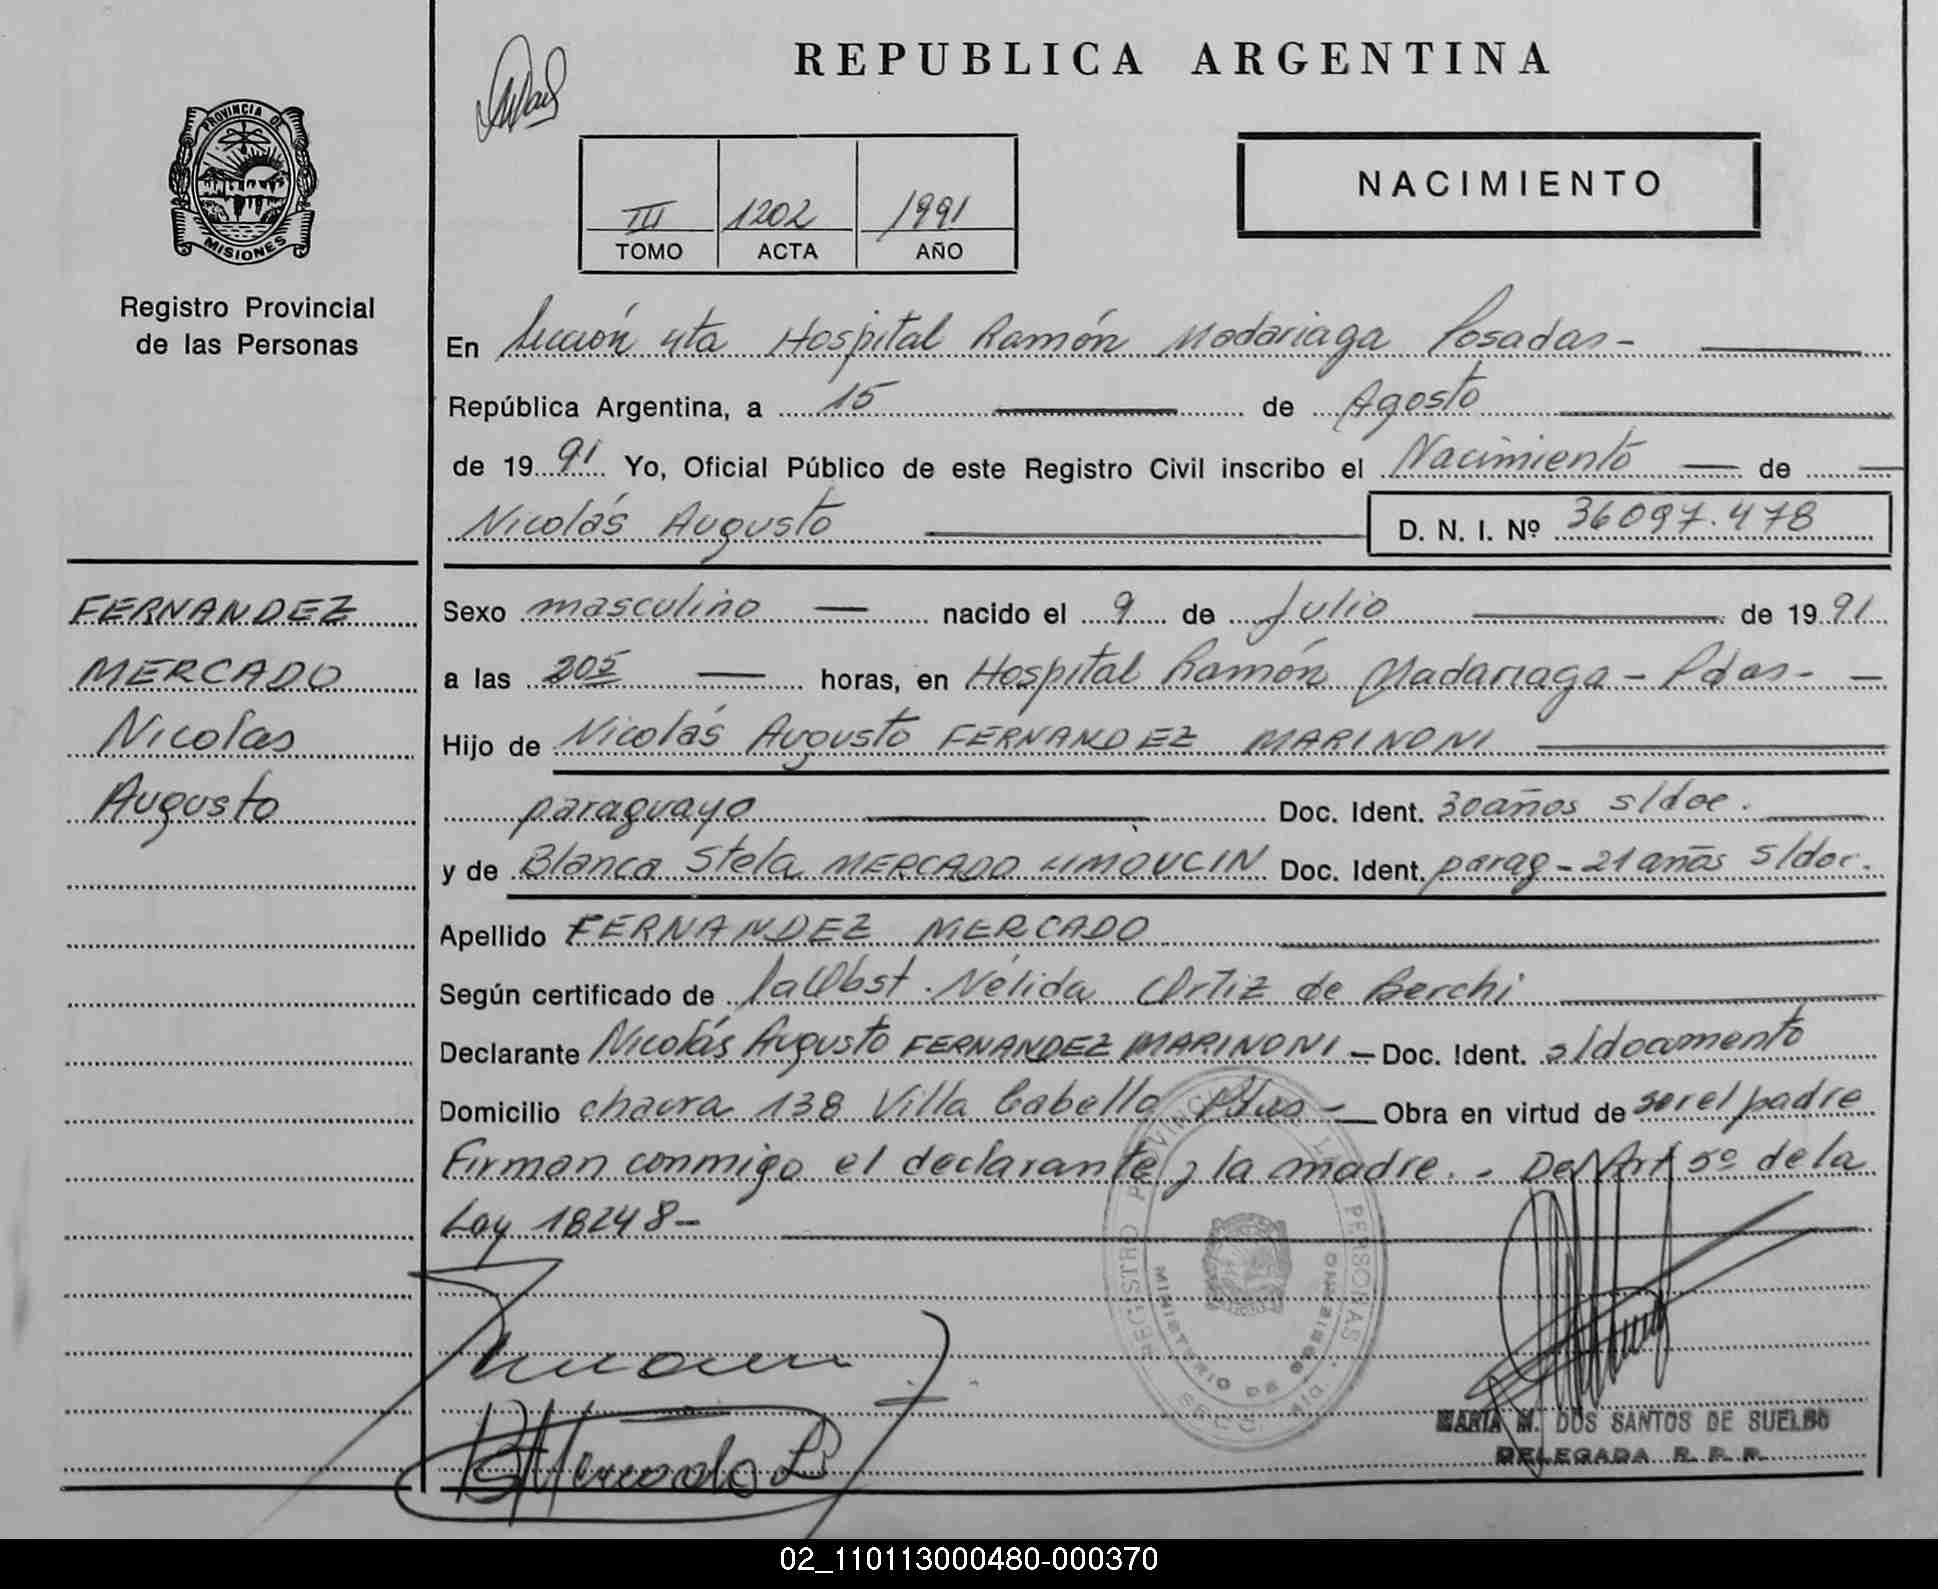 REPUBLICA ARGENTINA
PROVINCIA DE
MISIONES
Registro Provincial
de las Personas
III 1202 1991
TOMO ACTA AÑO
NACIMIENTO
En Sección 4ta Hospital Ramón Madariaga Posadas-
República Argentina, a 15 de Agosto
de 1991 Yo, Oficial Público de este Registro Civil inscribo el Nacimiento de
Nicolás Augusto D. N. I. Nº 36097.478
FERNANDEZ
MERCADO
Nicolas
Augusto
Sexo masculino nacido el 9 de Julio de 1991
a las 205 horas, en Hospital Ramón Madariaga - Pdas-
Hijo de Nicolás Augusto FERNANDEZ MARINONI
paraguayo Doc. Ident. 30años s/doc.
y de Blanca Stela MERCADO LIMOUCIN Doc. Ident. parag - 21 años s/doc.
Apellido FERNANDEZ MERCADO
Según certificado de la Obst. Nélida Ortiz de Berchi
Declarante Nicolás Augusto FERNANDEZ MARINONI - Doc. Ident. s/documento
Domicilio chacra 138 Villa Cabello Pdas - Obra en virtud de ser el padre
Firman conmigo el declarante y la madre. - Del Art 5º de la
Ley 18248-
REGISTRO PROVINCIAL PERSONAS
MINISTERIO DE GOBIERNO
B Mercado L
MARIA M. DOS SANTOS DE SUELDO
DELEGADA R. P. P.
02_110113000480-000370